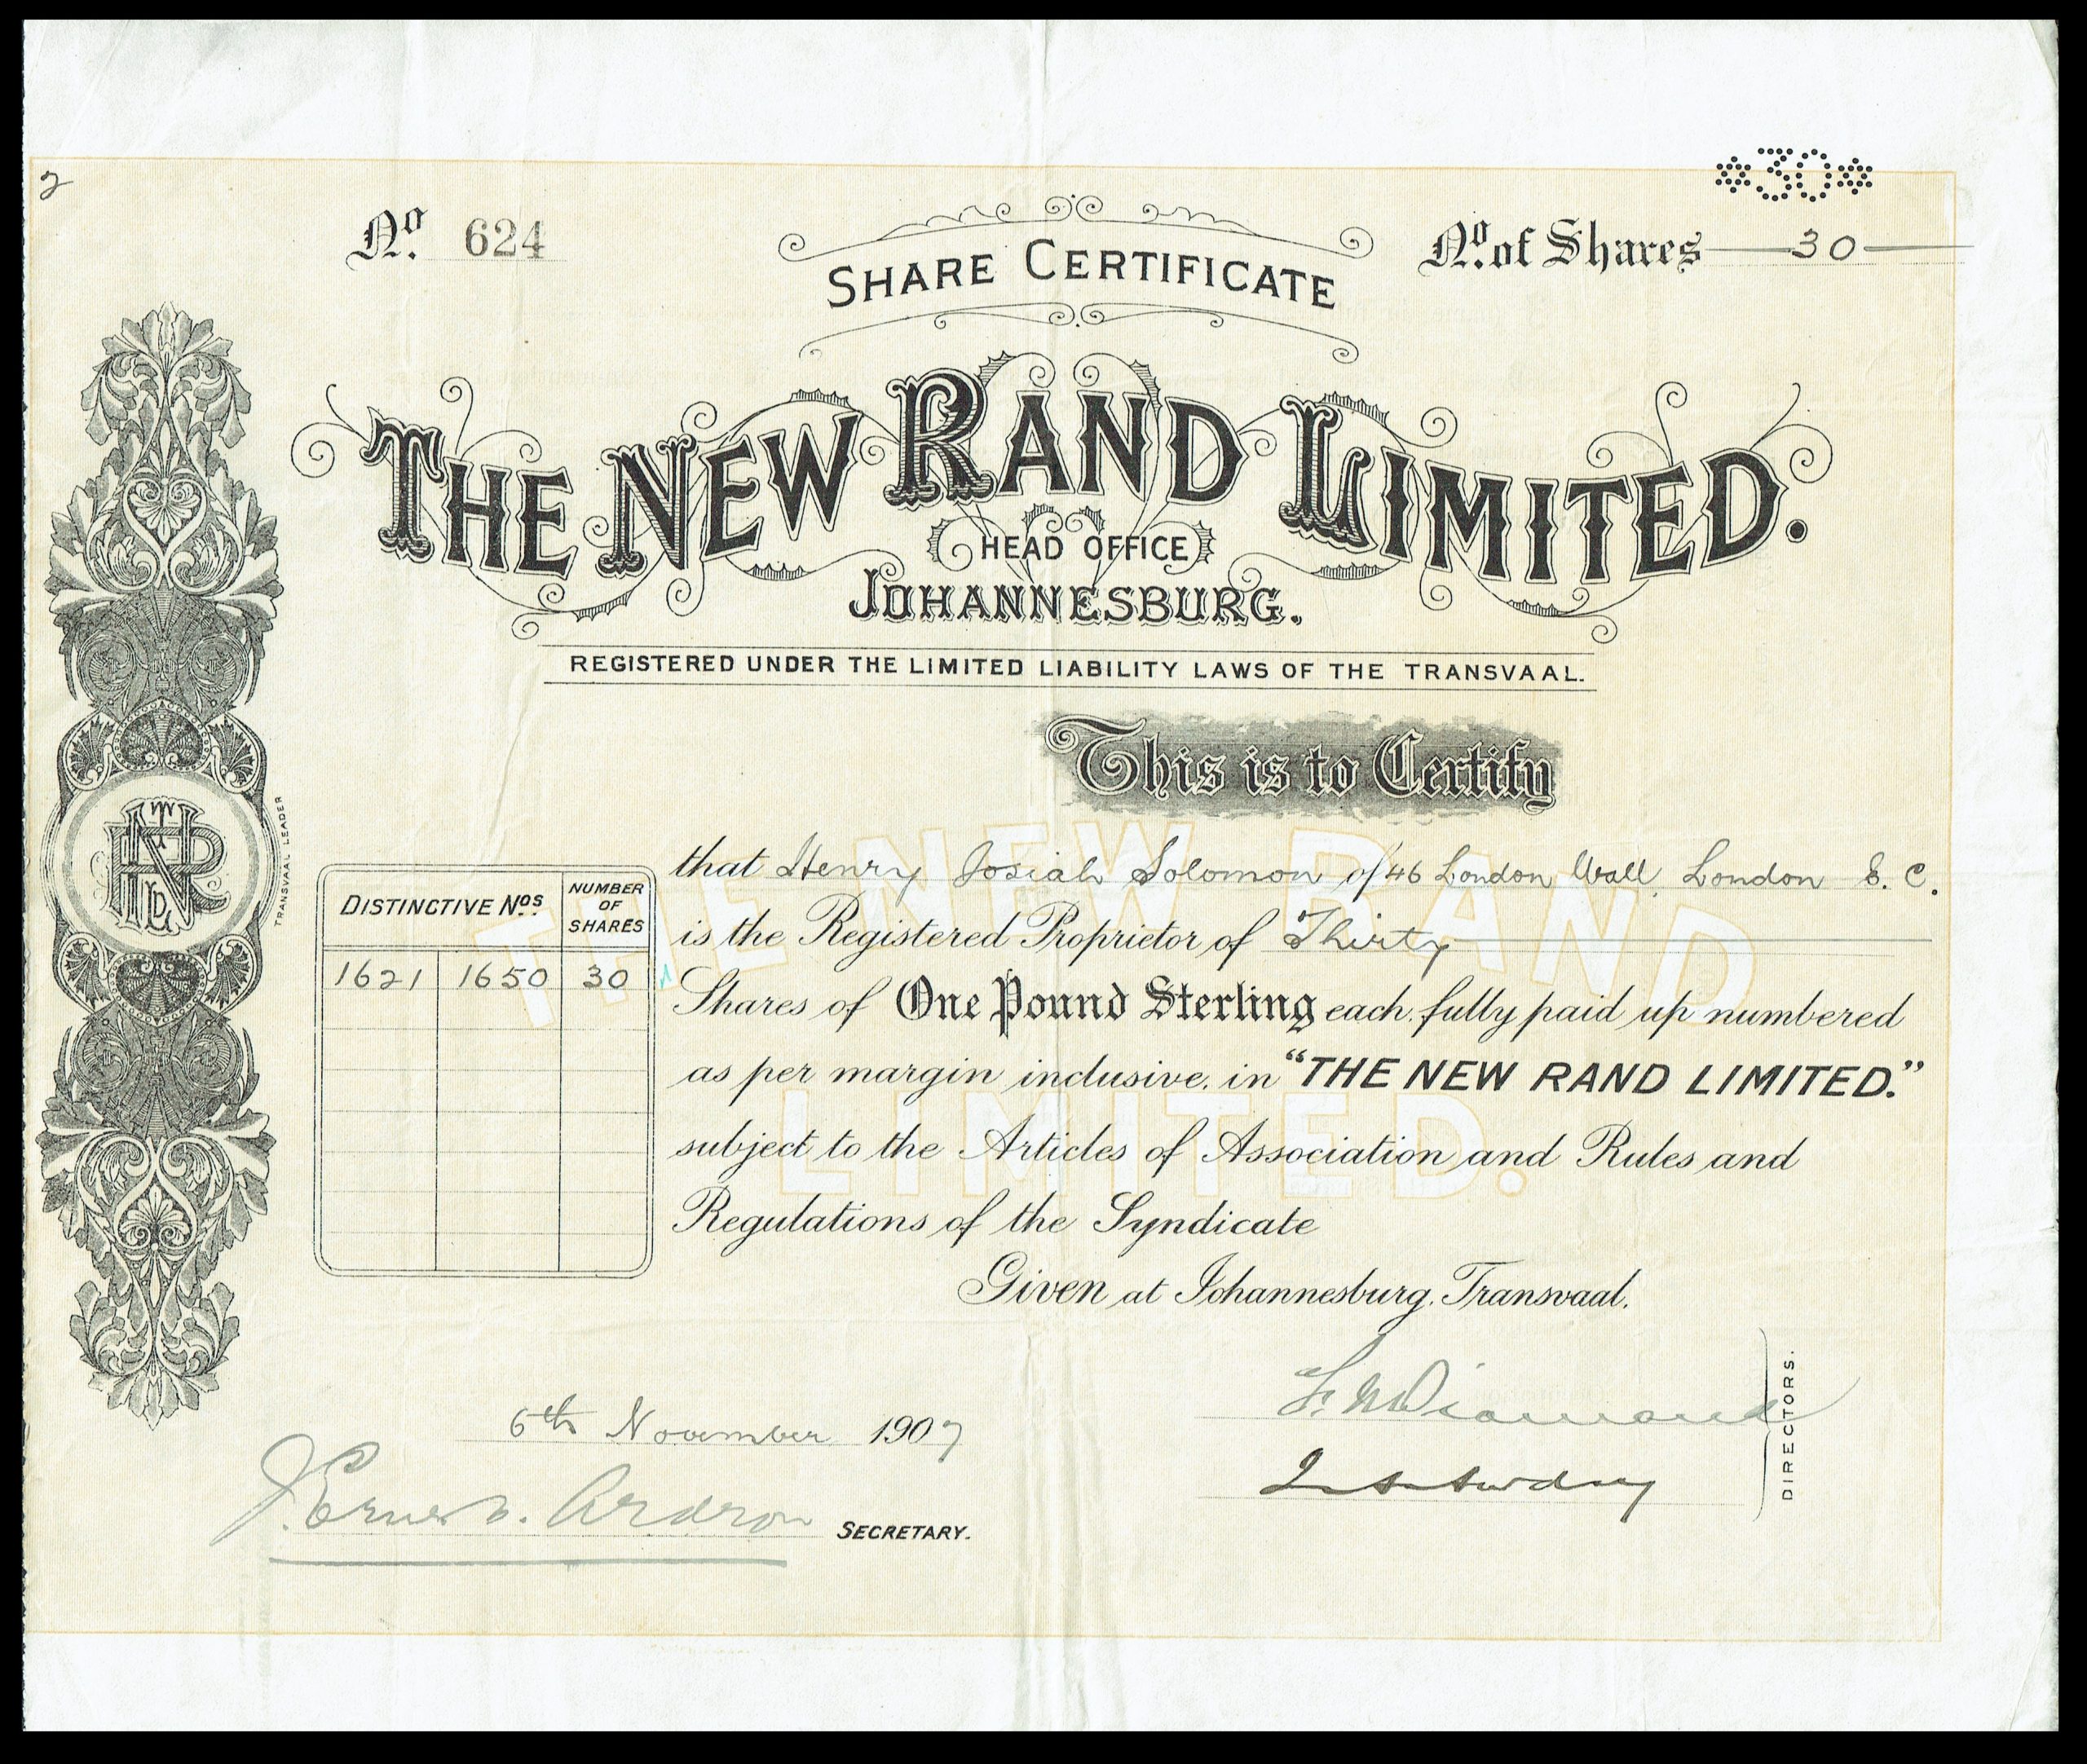 2
*30*
No. 624
No. of Shares 30
SHARE CERTIFICATE
THE NEW RAND LIMITED.
HEAD OFFICE
JOHANNESBURG.
REGISTERED UNDER THE LIMITED LIABILITY LAWS OF THE TRANSVAAL.
This is to Certify
that Henry Josiah Solomon of 46 London Wall, London E. C.
is the Registered Proprietor of Thirty
Shares of One Pound Sterling each, fully paid up numbered
as per margin inclusive, in "THE NEW RAND LIMITED."
subject to the Articles of Association and Rules and
Regulations of the Syndicate
Given at Johannesburg, Transvaal.
DISTINCTIVE Nos. NUMBER OF SHARES
1621 1650 30
TRANSVAAL LEADER
THE NEW RAND
LIMITED.
6th November 1907
J. Ernest. Ardron SECRETARY.
Diamond
DIRECTORS.